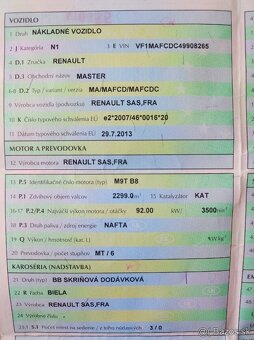 VOZIDLO
1 Druh NÁKLADNÉ VOZIDLO
2 J Kategória N1 3 E VIN VF1MAFCDC49908265
4 D.1 Značka RENAULT
5 D.3 Obchodný názov MASTER
6-8 D.2 Typ / variant / verzia MA/MAFCD/MAFCDC
9 Výrobca vozidla (podvozku) RENAULT SAS,FRA
10 K Číslo typového schválenia EÚ e2*2007/46*0016*20
11 Dátum typového schválenia EÚ 29.7.2013
MOTOR A PREVODOVKA
12 Výrobca motora RENAULT SAS,FRA
13 P.5 Identifikačné číslo motora (typ) M9T B8
14 P.1 Zdvihový objem valcov 2299.0 cm³ 15 Katalyzátor KAT
16-17 P.2/P.4 Najväčší výkon motora / otáčky 92.00 kW/ 3500 min⁻¹
18 P.3 Druh paliva / zdroj energie NAFTA
19 Q Výkon / hmotnosť (kat. L) kW.kg⁻¹
20 Prevodovka / počet stupňov MT / 6
KAROSÉRIA (NADSTAVBA)
21 Druh (typ) BB SKRIŇOVÁ DODÁVKOVÁ
22 R Farba BIELA
23 Výrobca RENAULT SAS,FRA
24 Výrobné číslo
25.1 S.1 Počet miest na sedenie / z toho núdzových 3 / 0